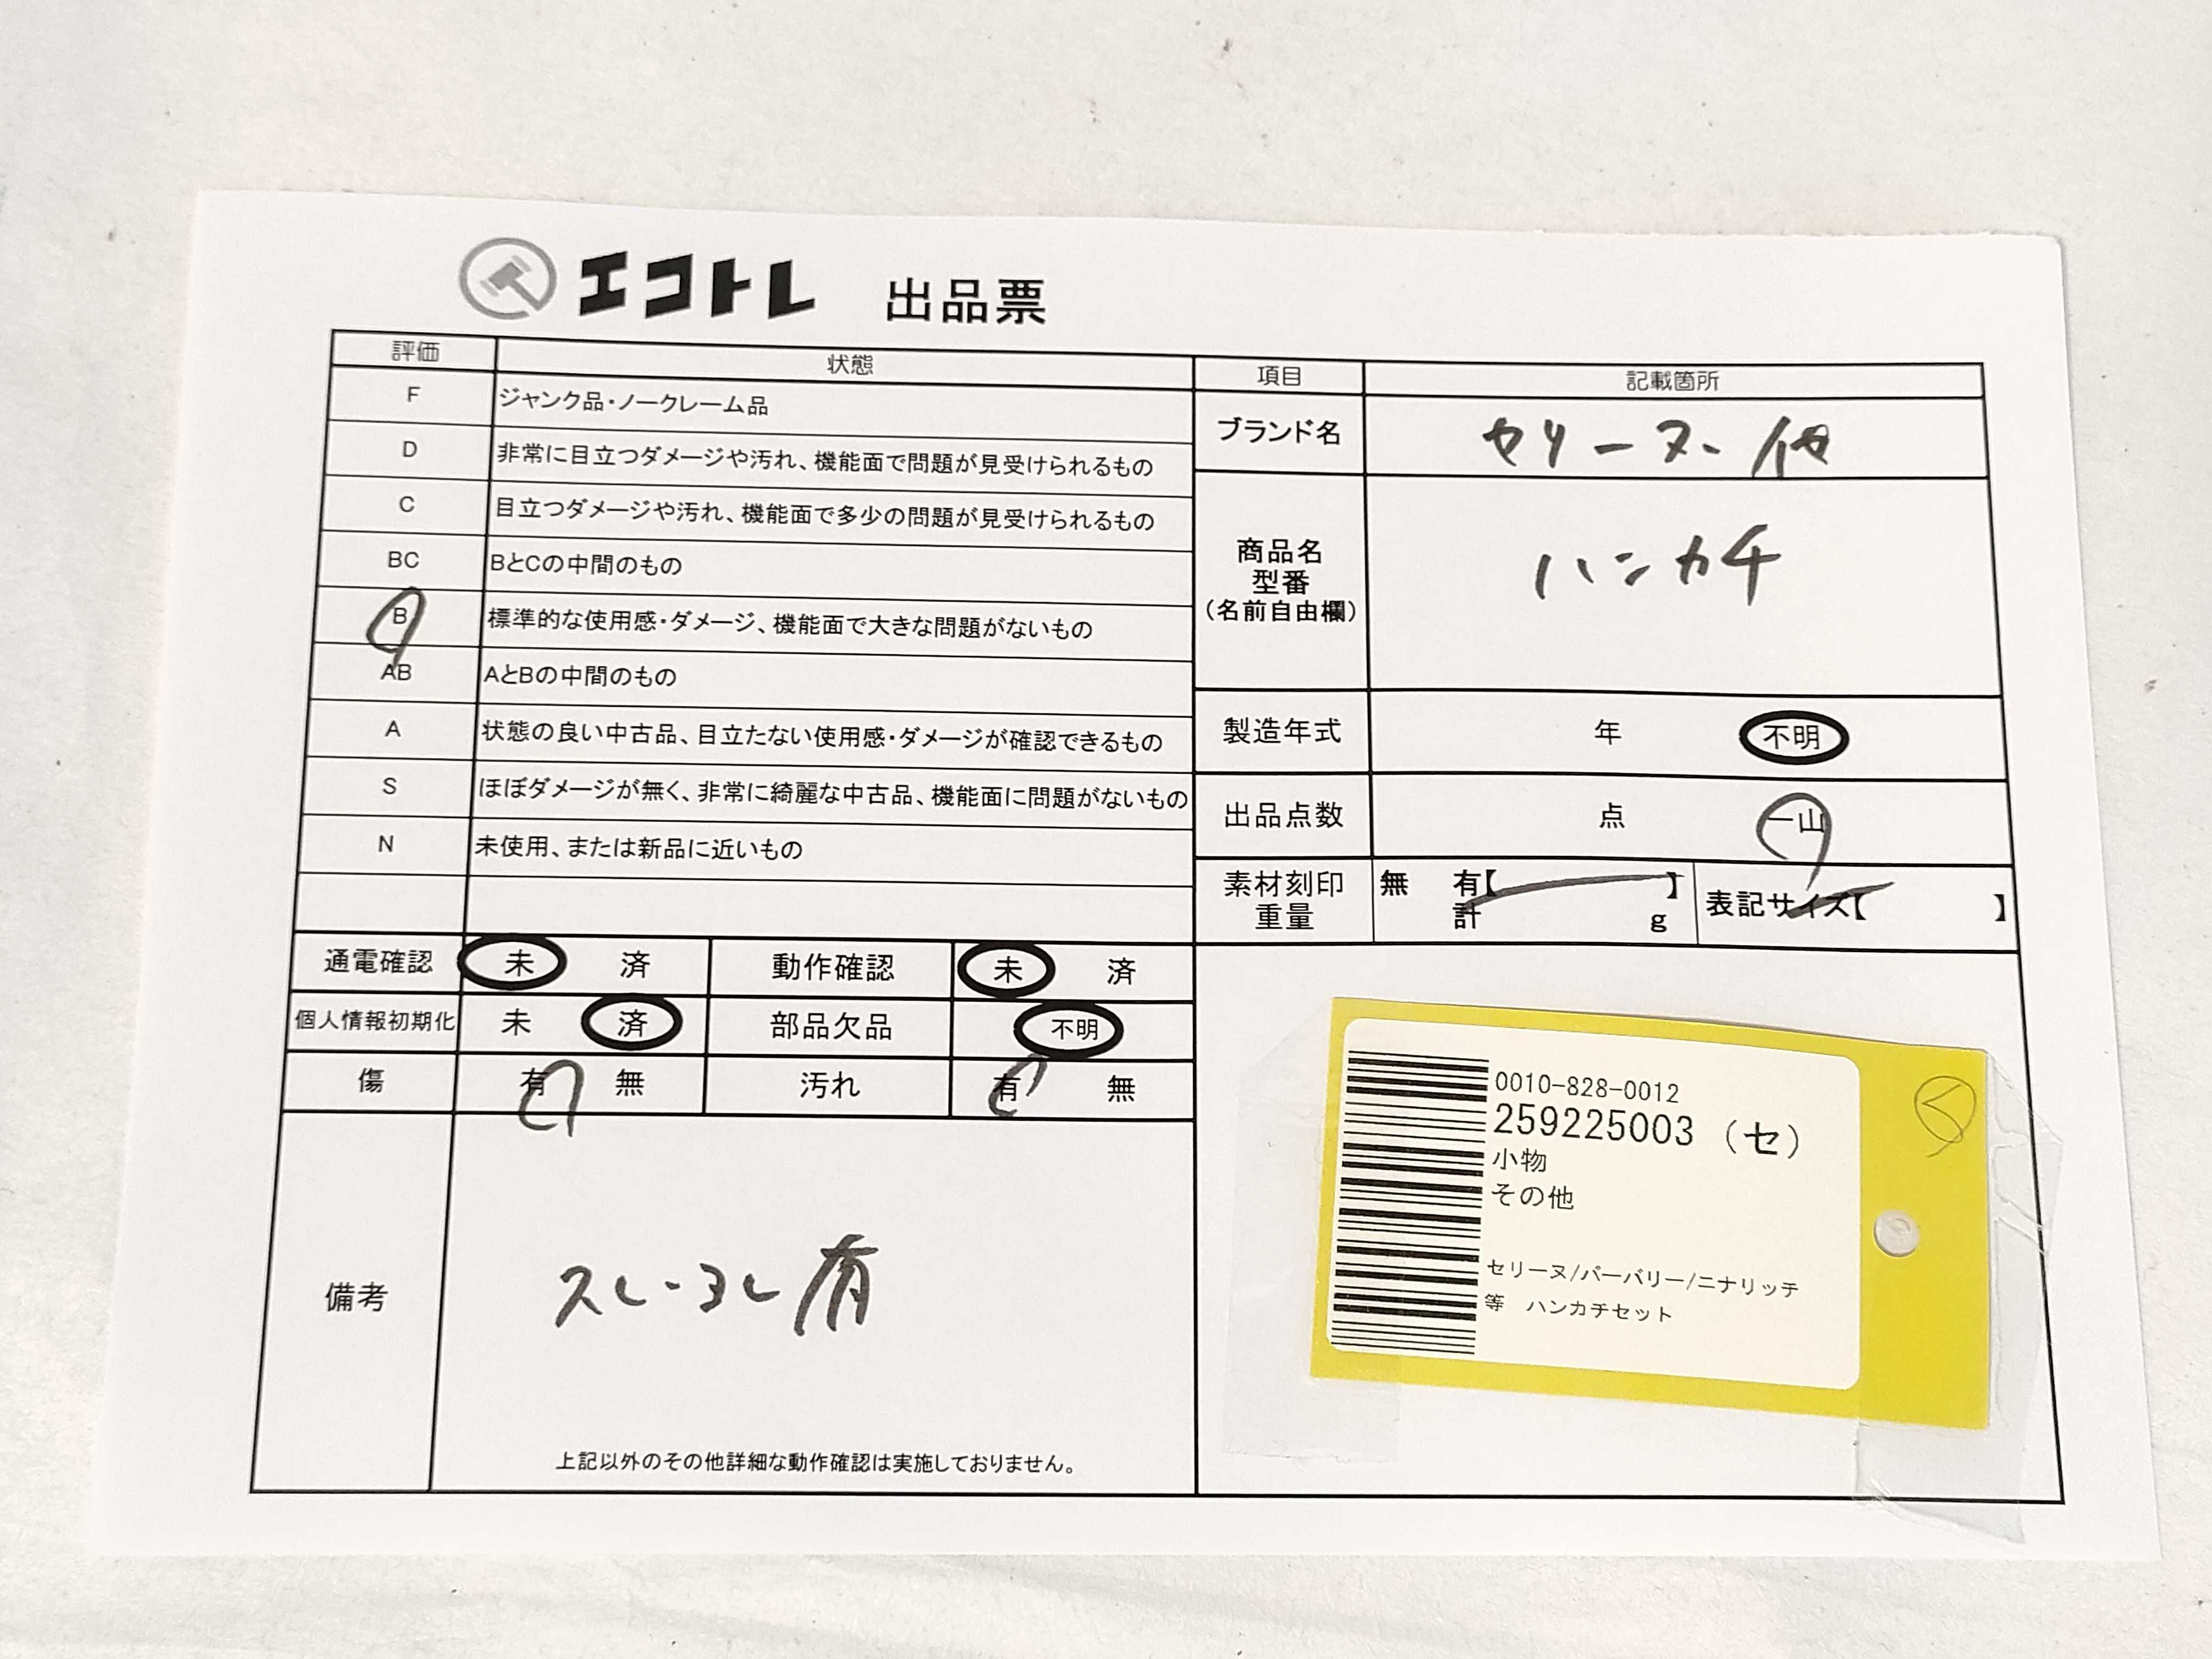 エコトレ 出品票
評価 状態
F ジャンク品・ノークレーム品
D 非常に目立つダメージや汚れ、機能面で問題が見受けられるもの
C 目立つダメージや汚れ、機能面で多少の問題が見受けられるもの
BC BとCの中間のもの
B 標準的な使用感・ダメージ、機能面で大きな問題がないもの
AB AとBの中間のもの
A 状態の良い中古品、目立たない使用感・ダメージが確認できるもの
S ほぼダメージが無く、非常に綺麗な中古品、機能面に問題がないもの
N 未使用、または新品に近いもの
通電確認 未 済 動作確認 未 済
個人情報初期化 未 済 部品欠品 不明
傷 有 無 汚れ 有 無
備考 スレ・ヨレ有
上記以外のその他詳細な動作確認は実施しておりません。
項目 記載箇所
ブランド名 セリーヌ 他
商品名
型番
(名前自由欄)
ハンカチ
製造年式 年 不明
出品点数 点 一山
素材刻印 無 有【 】
重量 計 g
表記サイズ【 】
0010-828-0012
259225003 (セ)
小物
その他
セリーヌ/バーバリー/ニナリッチ
等 ハンカチセット